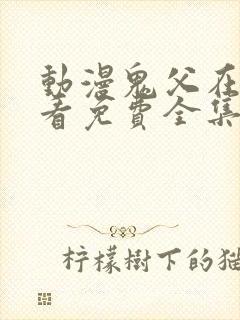 動漫鬼父在
看免費全集
柠檬樹下的猫